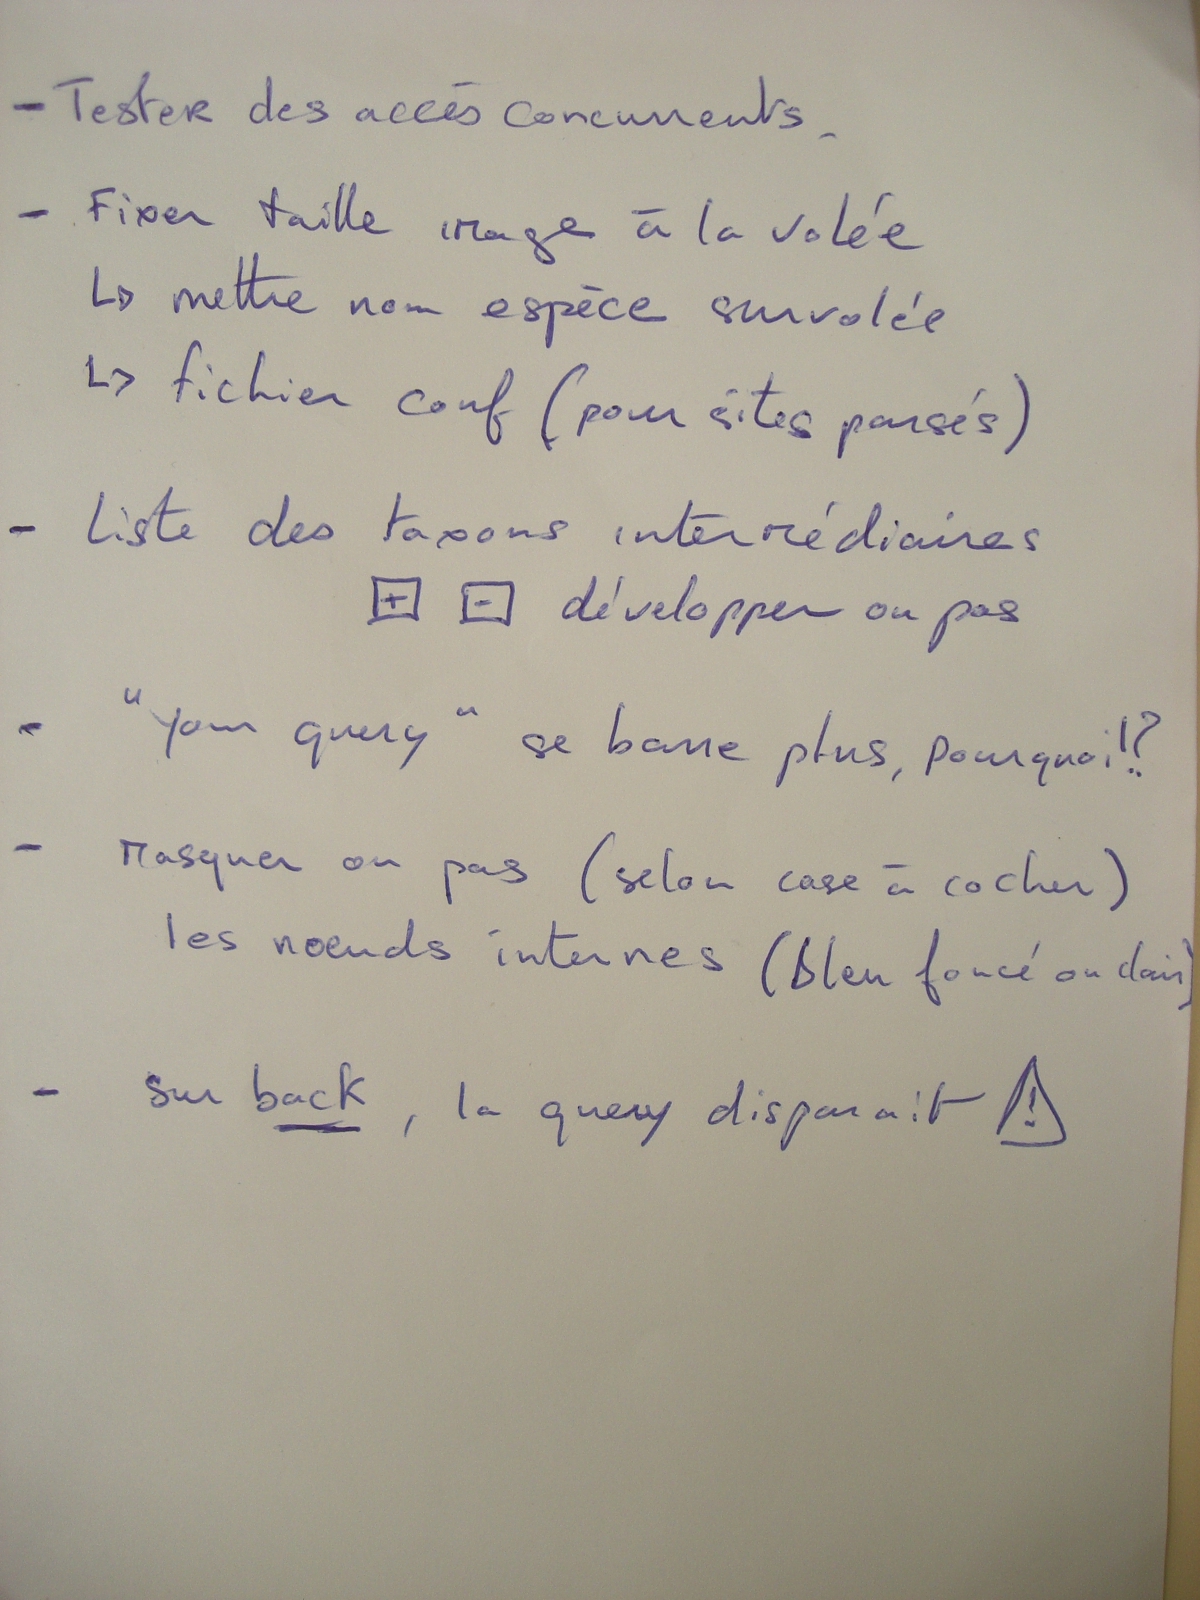 - Tester des accès concurrents.
- Fixer taille image à la volée
↳ mettre nom espèce survolée
↳ fichier conf (pour sites parsés)
- Liste des taxons intermédiaires
[+] [-] développer ou pas
- "your query" se barre plus, pourquoi!?
- Masquer ou pas (selon case à cocher)
les noeuds internes (bleu foncé ou clair)
- sur back, la query disparait ⚠